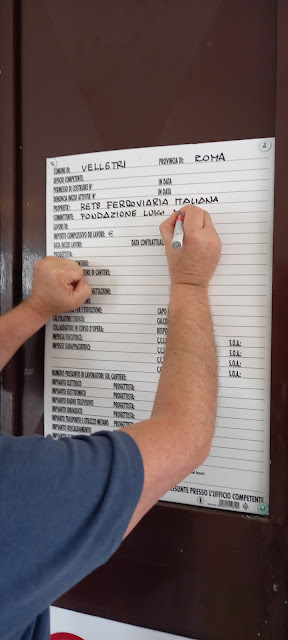 COMUNE DI: VELLETRI PROVINCIA DI: ROMA
UFFICIO COMPETENTE:
PERMESSO DI COSTRUIRE N° IN DATA
DENUNCIA INIZIO ATTIVITA' N° IN DATA
PROPRIETA': RETE FERROVIARIA ITALIANA
COMMITTENTE: FONDAZIONE LUIGI
LAVORI DI:
IMPORTO COMPLESSIVO DEI LAVORI: €
DATA INIZIO LAVORI: DATA CONTRATTUAL
PROGETTISTA:
DI CANTIERE:
GETTAZIONE:
CAPO
CALCOLATORE STATICO: CALC
COLLABORATORE IN CORSO D'OPERA: RESPO
IMPRESA ESECUTRICE: C.C. S.O.A.:
IMPRESE SUBAPPALTATRICI: C.C. S.O.A.:
C.C. S.O.A.:
NUMERO PRESUNTO DI LAVORATORI SUL CANTIERE:
IMPIANTO ELETTRICO PROGETTISTA:
IMPIANTO ELETTRONICO PROGETTISTA:
IMPIANTO RADIO TELEVISIVO PROGETTISTA:
IMPIANTO IDRAULICO PROGETTISTA:
IMPIANTO TRASPORTO E UTILIZZO METANO PROGETTISTA:
IMPIANTO RISCALDAMENTO
ASSUNTE PRESSO L'UFFICIO COMPETENTE